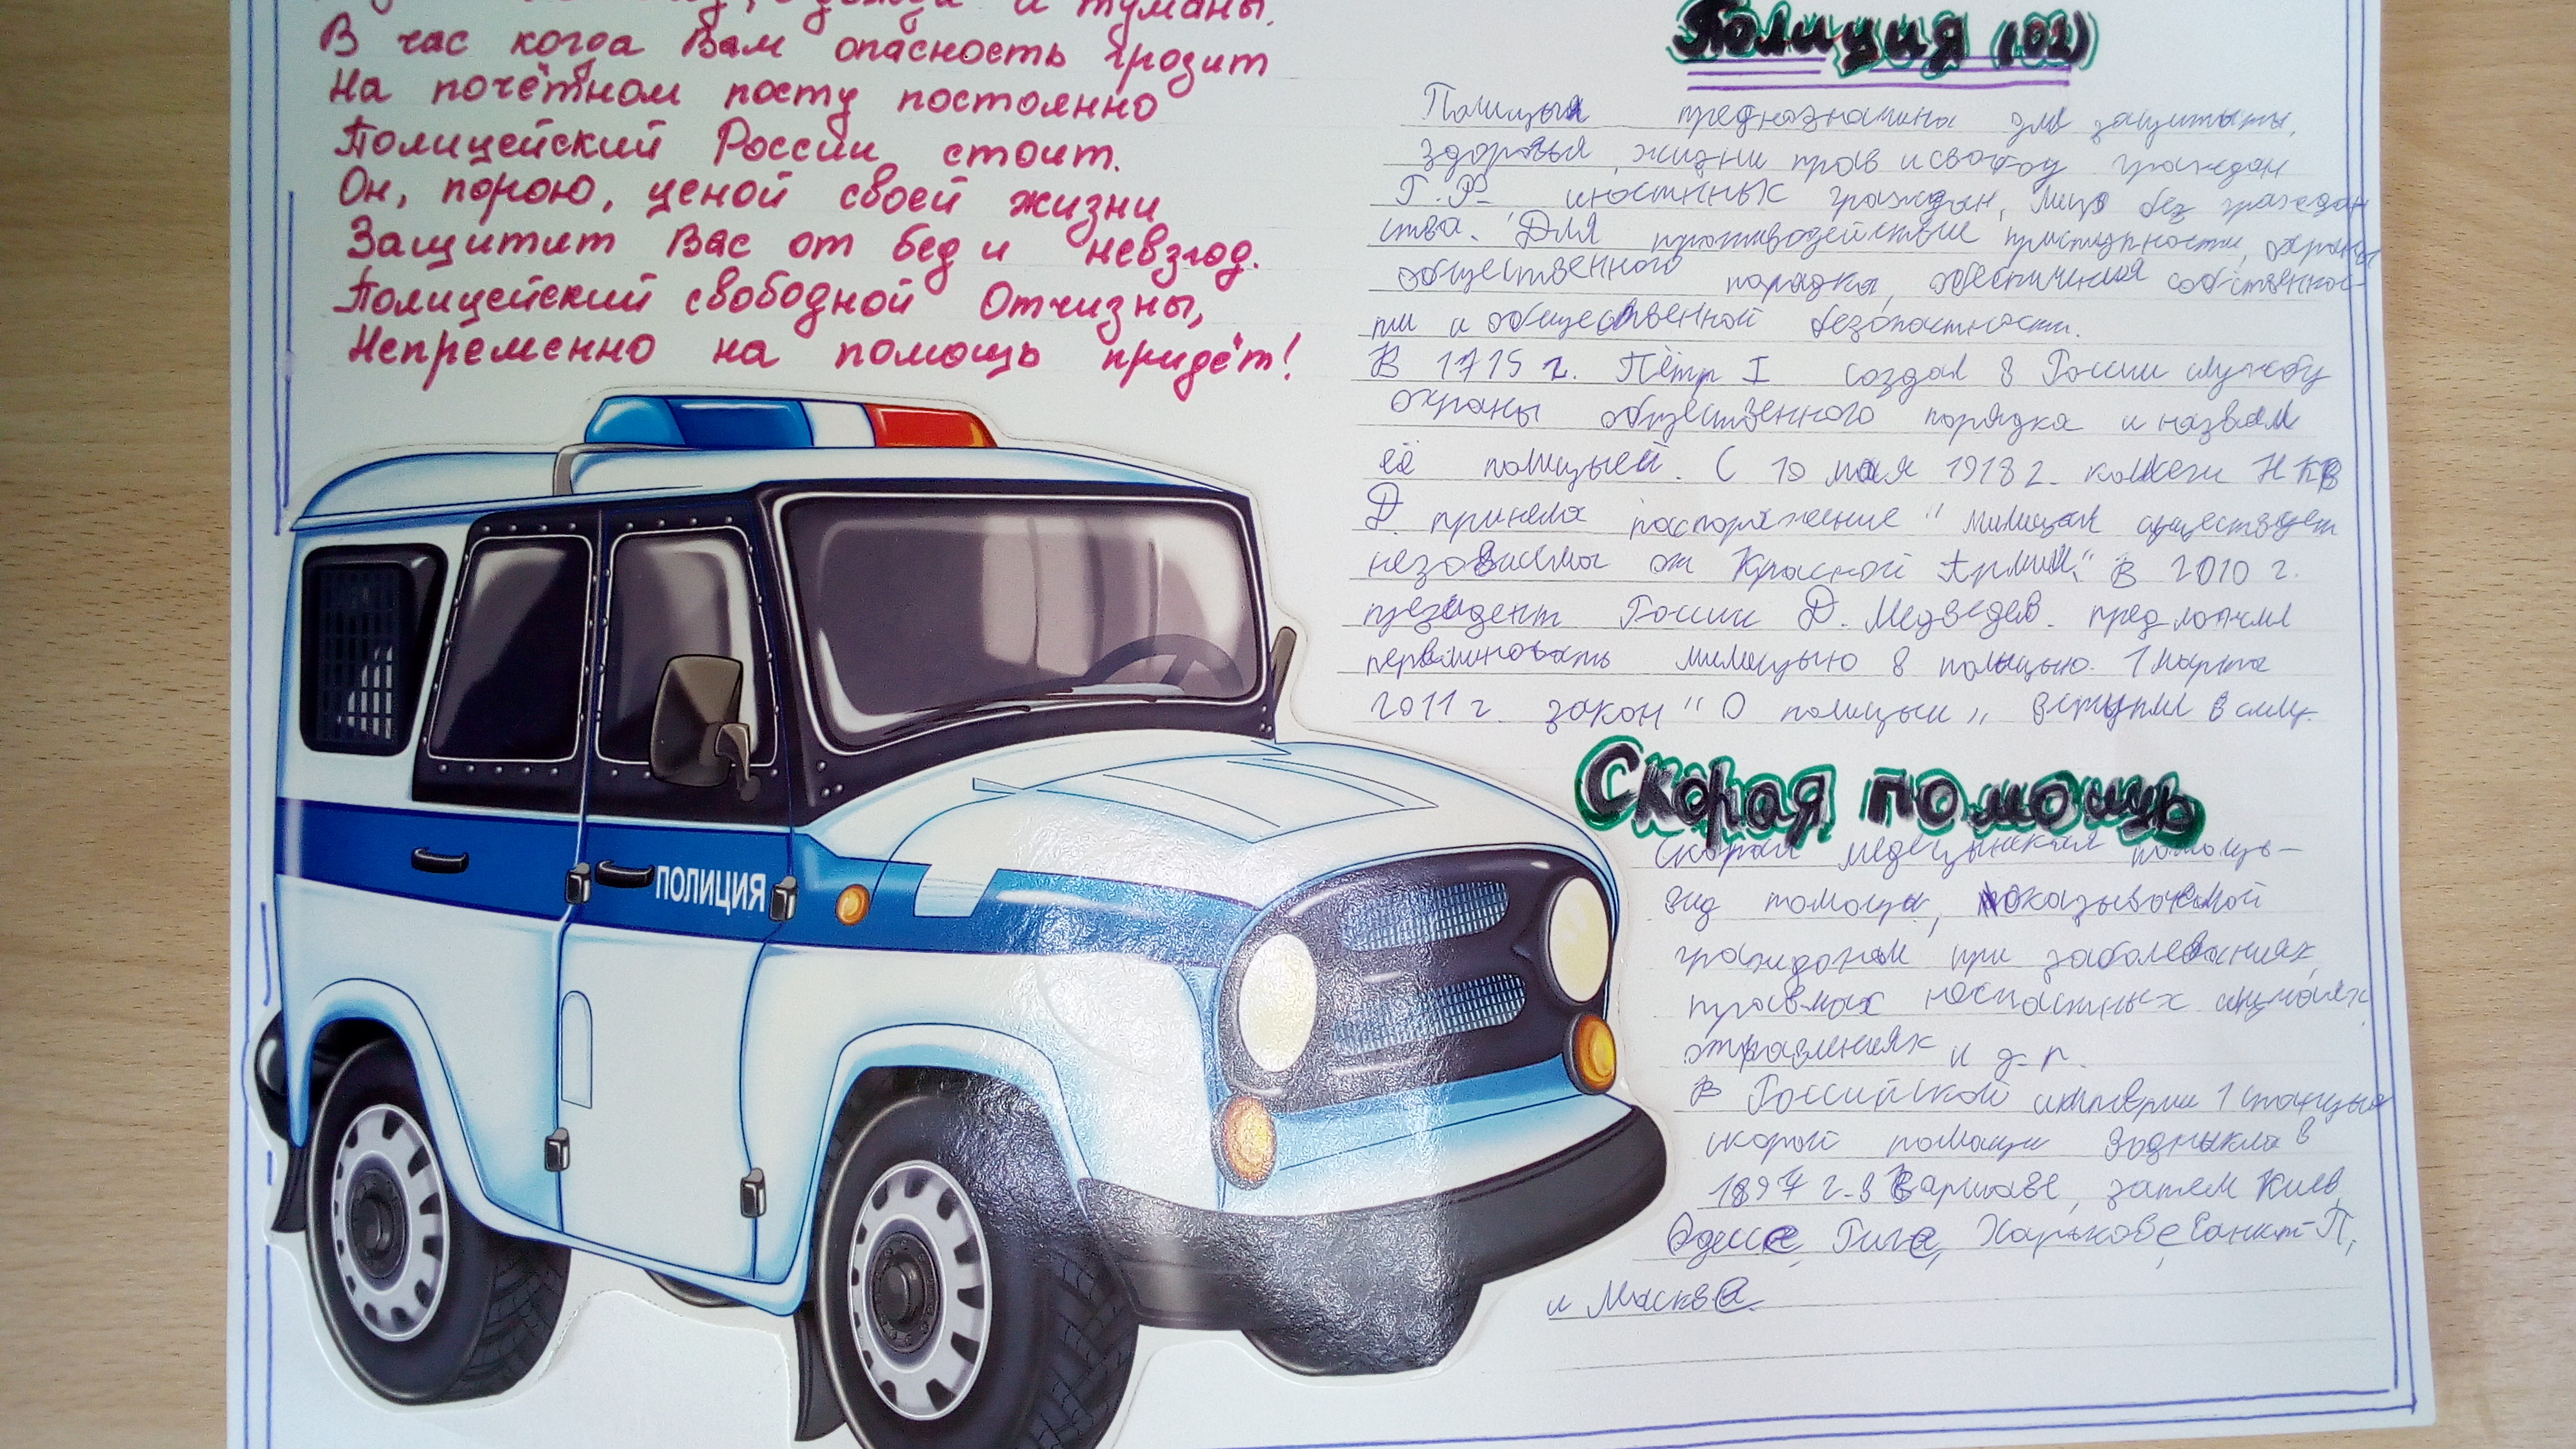 дожди и туманы.
В час когда Вам опасность грозит
На почётном посту постоянно
Полицейский России стоит.
Он, порою, ценой своей жизни
Защитит Вас от бед и невзгод.
Полицейский свободной Отчизны,
Непременно на помощь придёт!
ПОЛИЦИЯ
Полиция (102)
Полицыя предназначина для защитыты,
здоровья, жизни прав и свобод граждан
граждан, лицо без граждан
ства. Для противодействие приступности, охраны
общественного порядка, обеспичения собственнос-
ти и общественной безопастности.
В 1715 г. Пётр I создал в России службу
охраны общественного порядка и назвал
её полицыей. С 10 мая 1918 г. колеги НКВ
Д. приняла распоряжение "милицыя существует
независимы от Красной Армии." В 2010 г.
президент России Д. Медведев. предложил
милицыю в полицыю. 1 марта
2011 г. закон "О полицыи" вступил в силу.
Скорая помощь
Скорая медецынская помощь-
вид помощи, оказываемой
гражданам при заболеваниях,
травмах несчастных случаях,
отравлениях и д.р.
В Российской 1 станцыя
скорой помощи в
1897 г. в Варшаве, затем Киев,
Одессе, Риге, Харькове, Санкт-П,
и Москве.